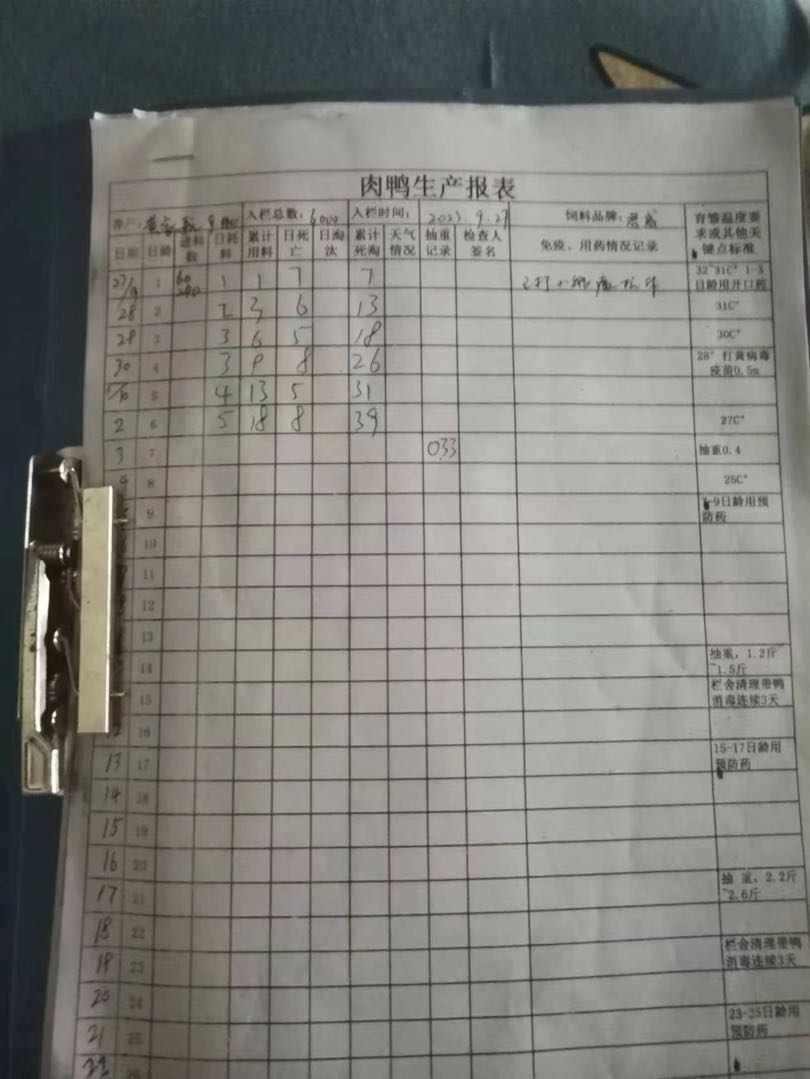 肉鸭生产报表
养户: 入栏总数: 6000 入栏时间: 2023.9.27 饲料品牌: 育雏温度要求或其他关键点标准
日期 日龄 进料数 日耗料 累计用料 日死亡 日淘汰 累计死淘 天气情况 抽重记录 检查人签名 免疫、用药情况记录
27/9 1 60 1 1 7 7 32~31C° 1-3日龄用开口药
28 2 2 3 6 13 31C°
29 3 3 6 5 18 30C°
30 4 3 9 8 26 28° 打黄病毒疫苗0.5m
1/10 5 4 13 5 31
2 6 5 18 8 39 27C°
3 7 033 抽重0.4
4 8 25C°
9 -9日龄用预防药
10
11
12
13
14 抽重, 1.2斤~1.5斤
15 栏舍清理带鸭消毒连续3天
16
13 17 15-17日龄用预防药
14 18
15 19
16 20
17 21 抽 重, 2.2斤~2.6斤
18 22
19 23 栏舍清理带鸭消毒连续3天
20 24
21 25 23-25日龄用预防药
22 26